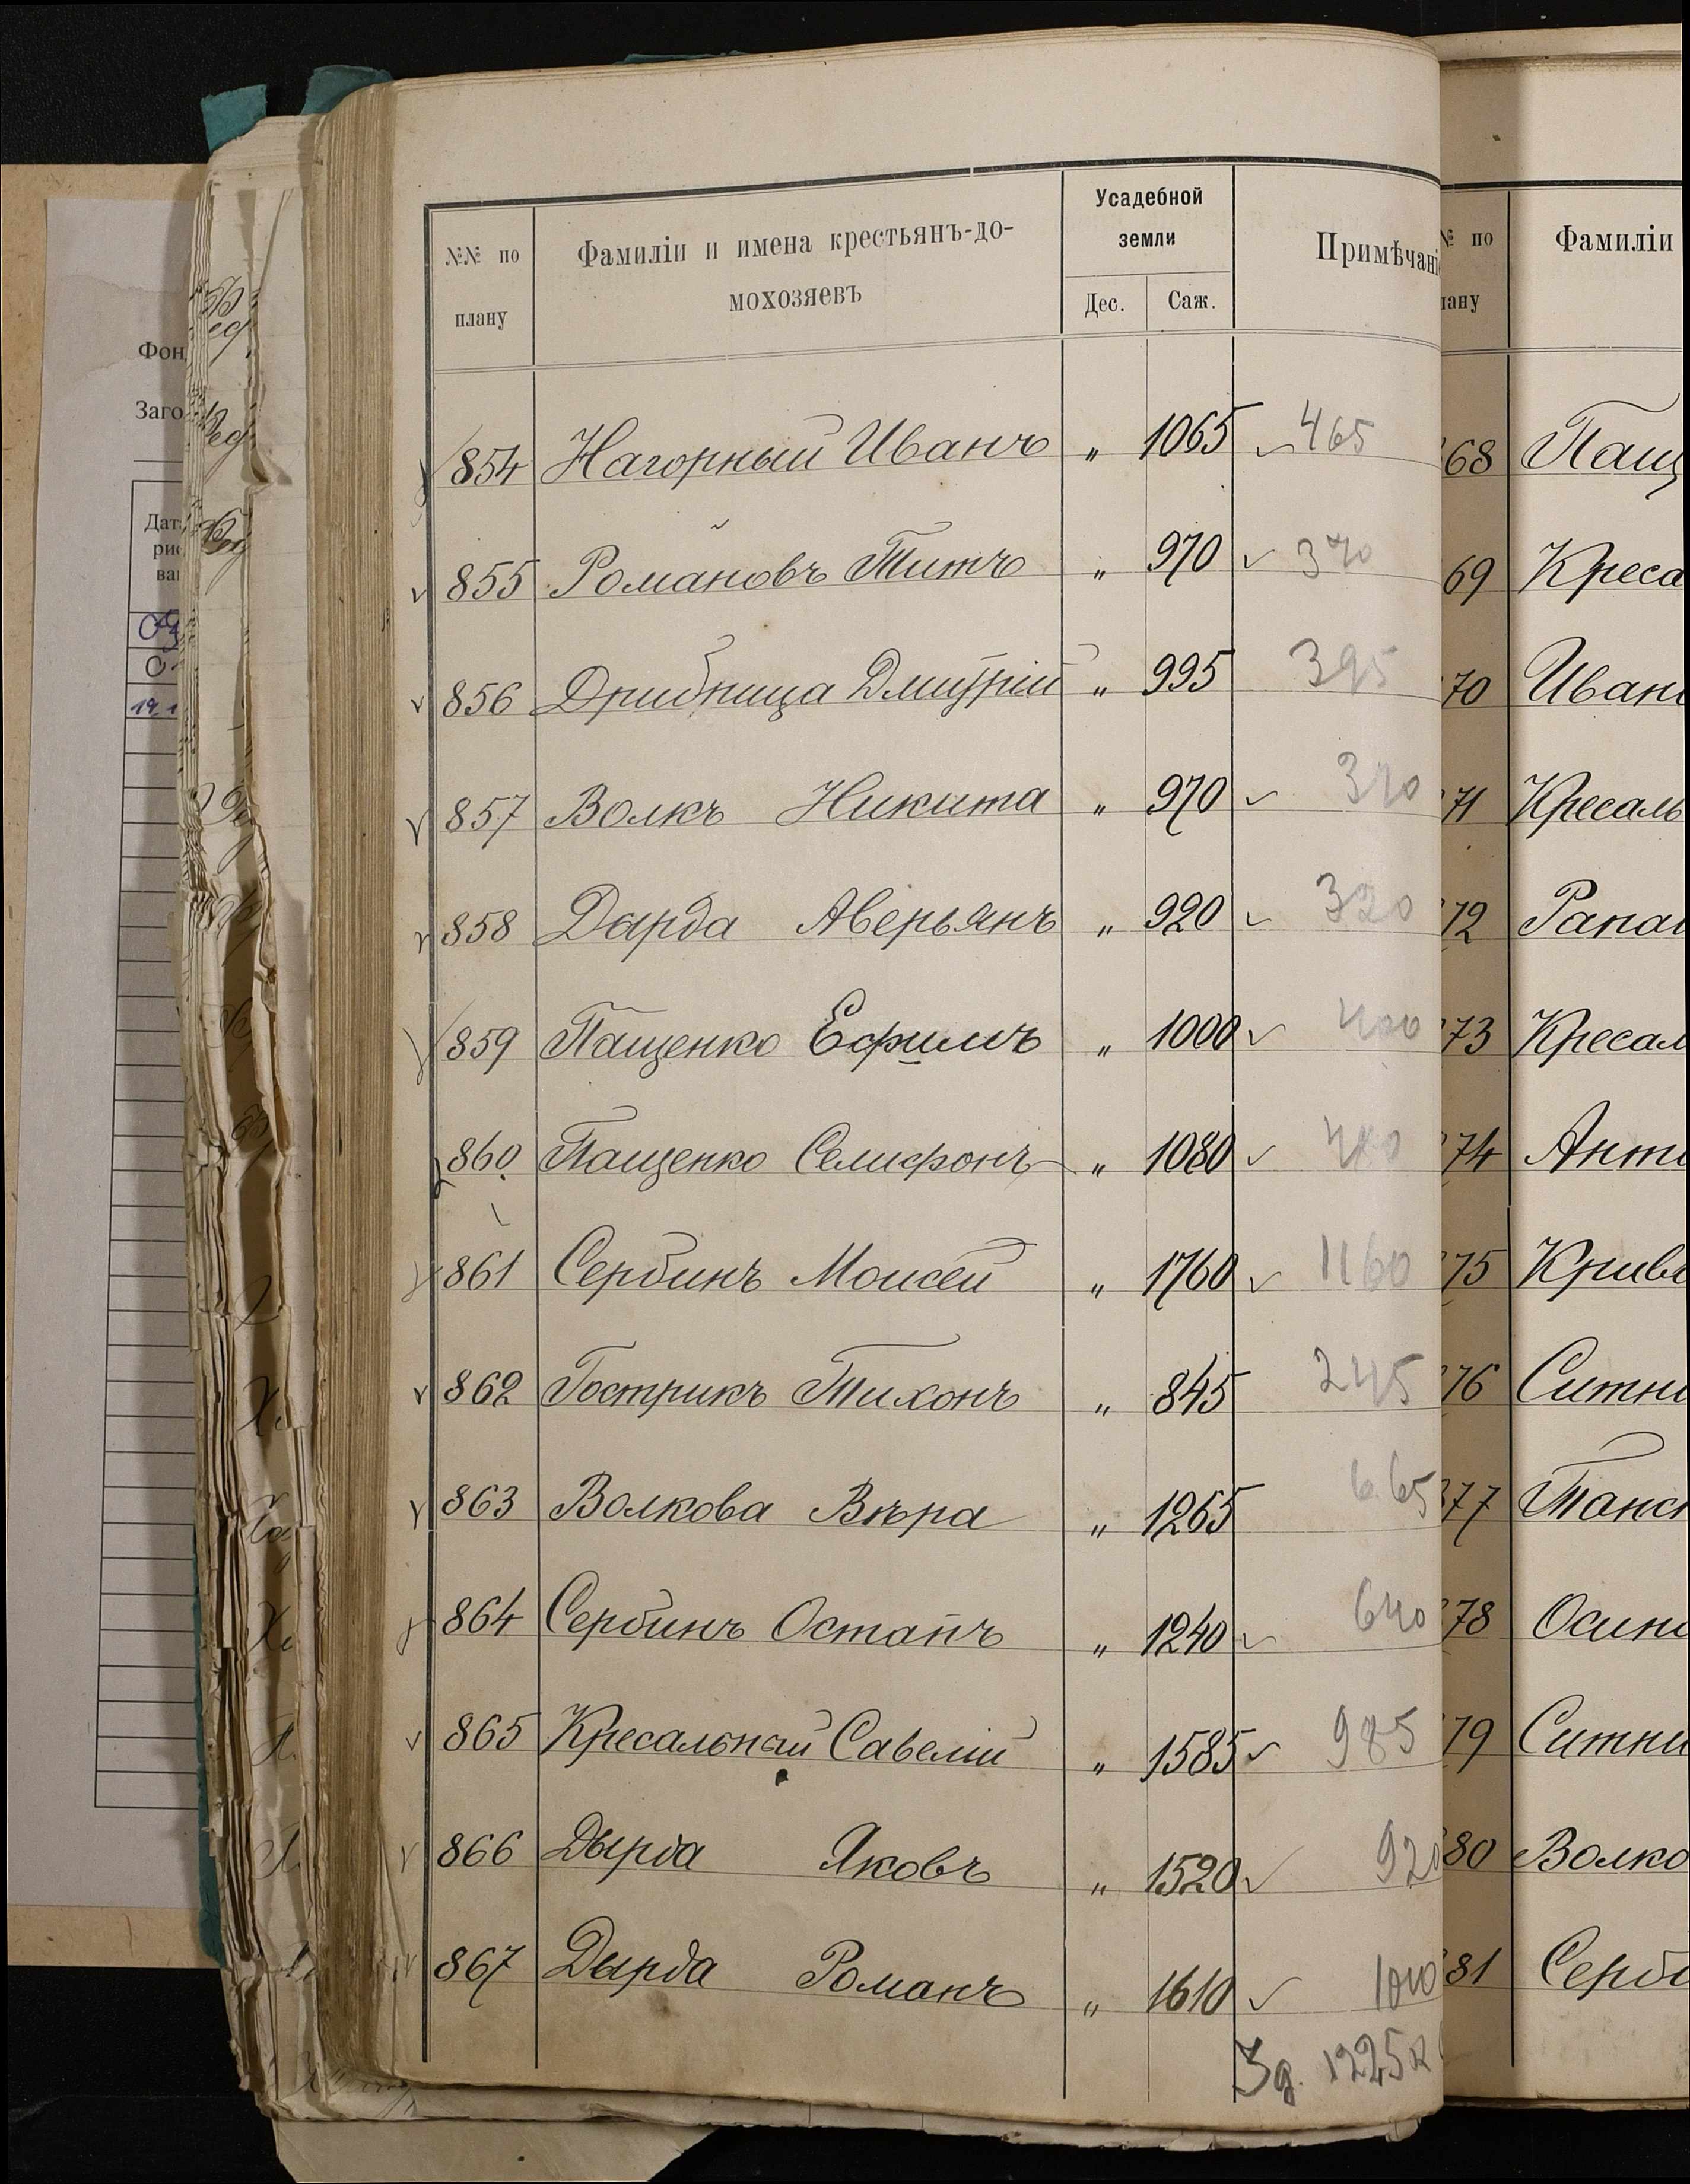 №№ по плану
Фамиліи и имена крестьянъ-до-
мохозяевъ
Усадебной
земли
Дес. Саж.
Примѣчані
854 Нагорный Иванъ " 1065 465
855 Романовъ Титъ " 970 370
856 Дрибница Дмитрій " 995 395
857 Волкъ Никита " 970 370
858 Дарда Аверьянъ " 920 320
859 Пащенко Ефимъ " 1000 400
860 Пащенко Селифонъ " 1080 480
861 Сербинъ Моисей " 1760 1160
862 Гострикъ Тихонъ " 845 245
863 Волкова Вѣра " 1265 665
864 Сербинъ Остапъ " 1240 640
865 Кресальный Савелій " 1585 985
866 Дырда Яковъ " 1520 920
867 Дырда Романъ " 1610 1010
3 д. 1225
№ по
лану
Фамиліи
68 Пащ
69 Креса
70 Иван
71 Кресаль
72 Рапа
73 Кресал
74 Ант
75 Крив
76 Ситн
877 Танс
78 Осип
79 Ситни
880 Волко
881 Серб
Фон
Заго
Дат
рис
ва